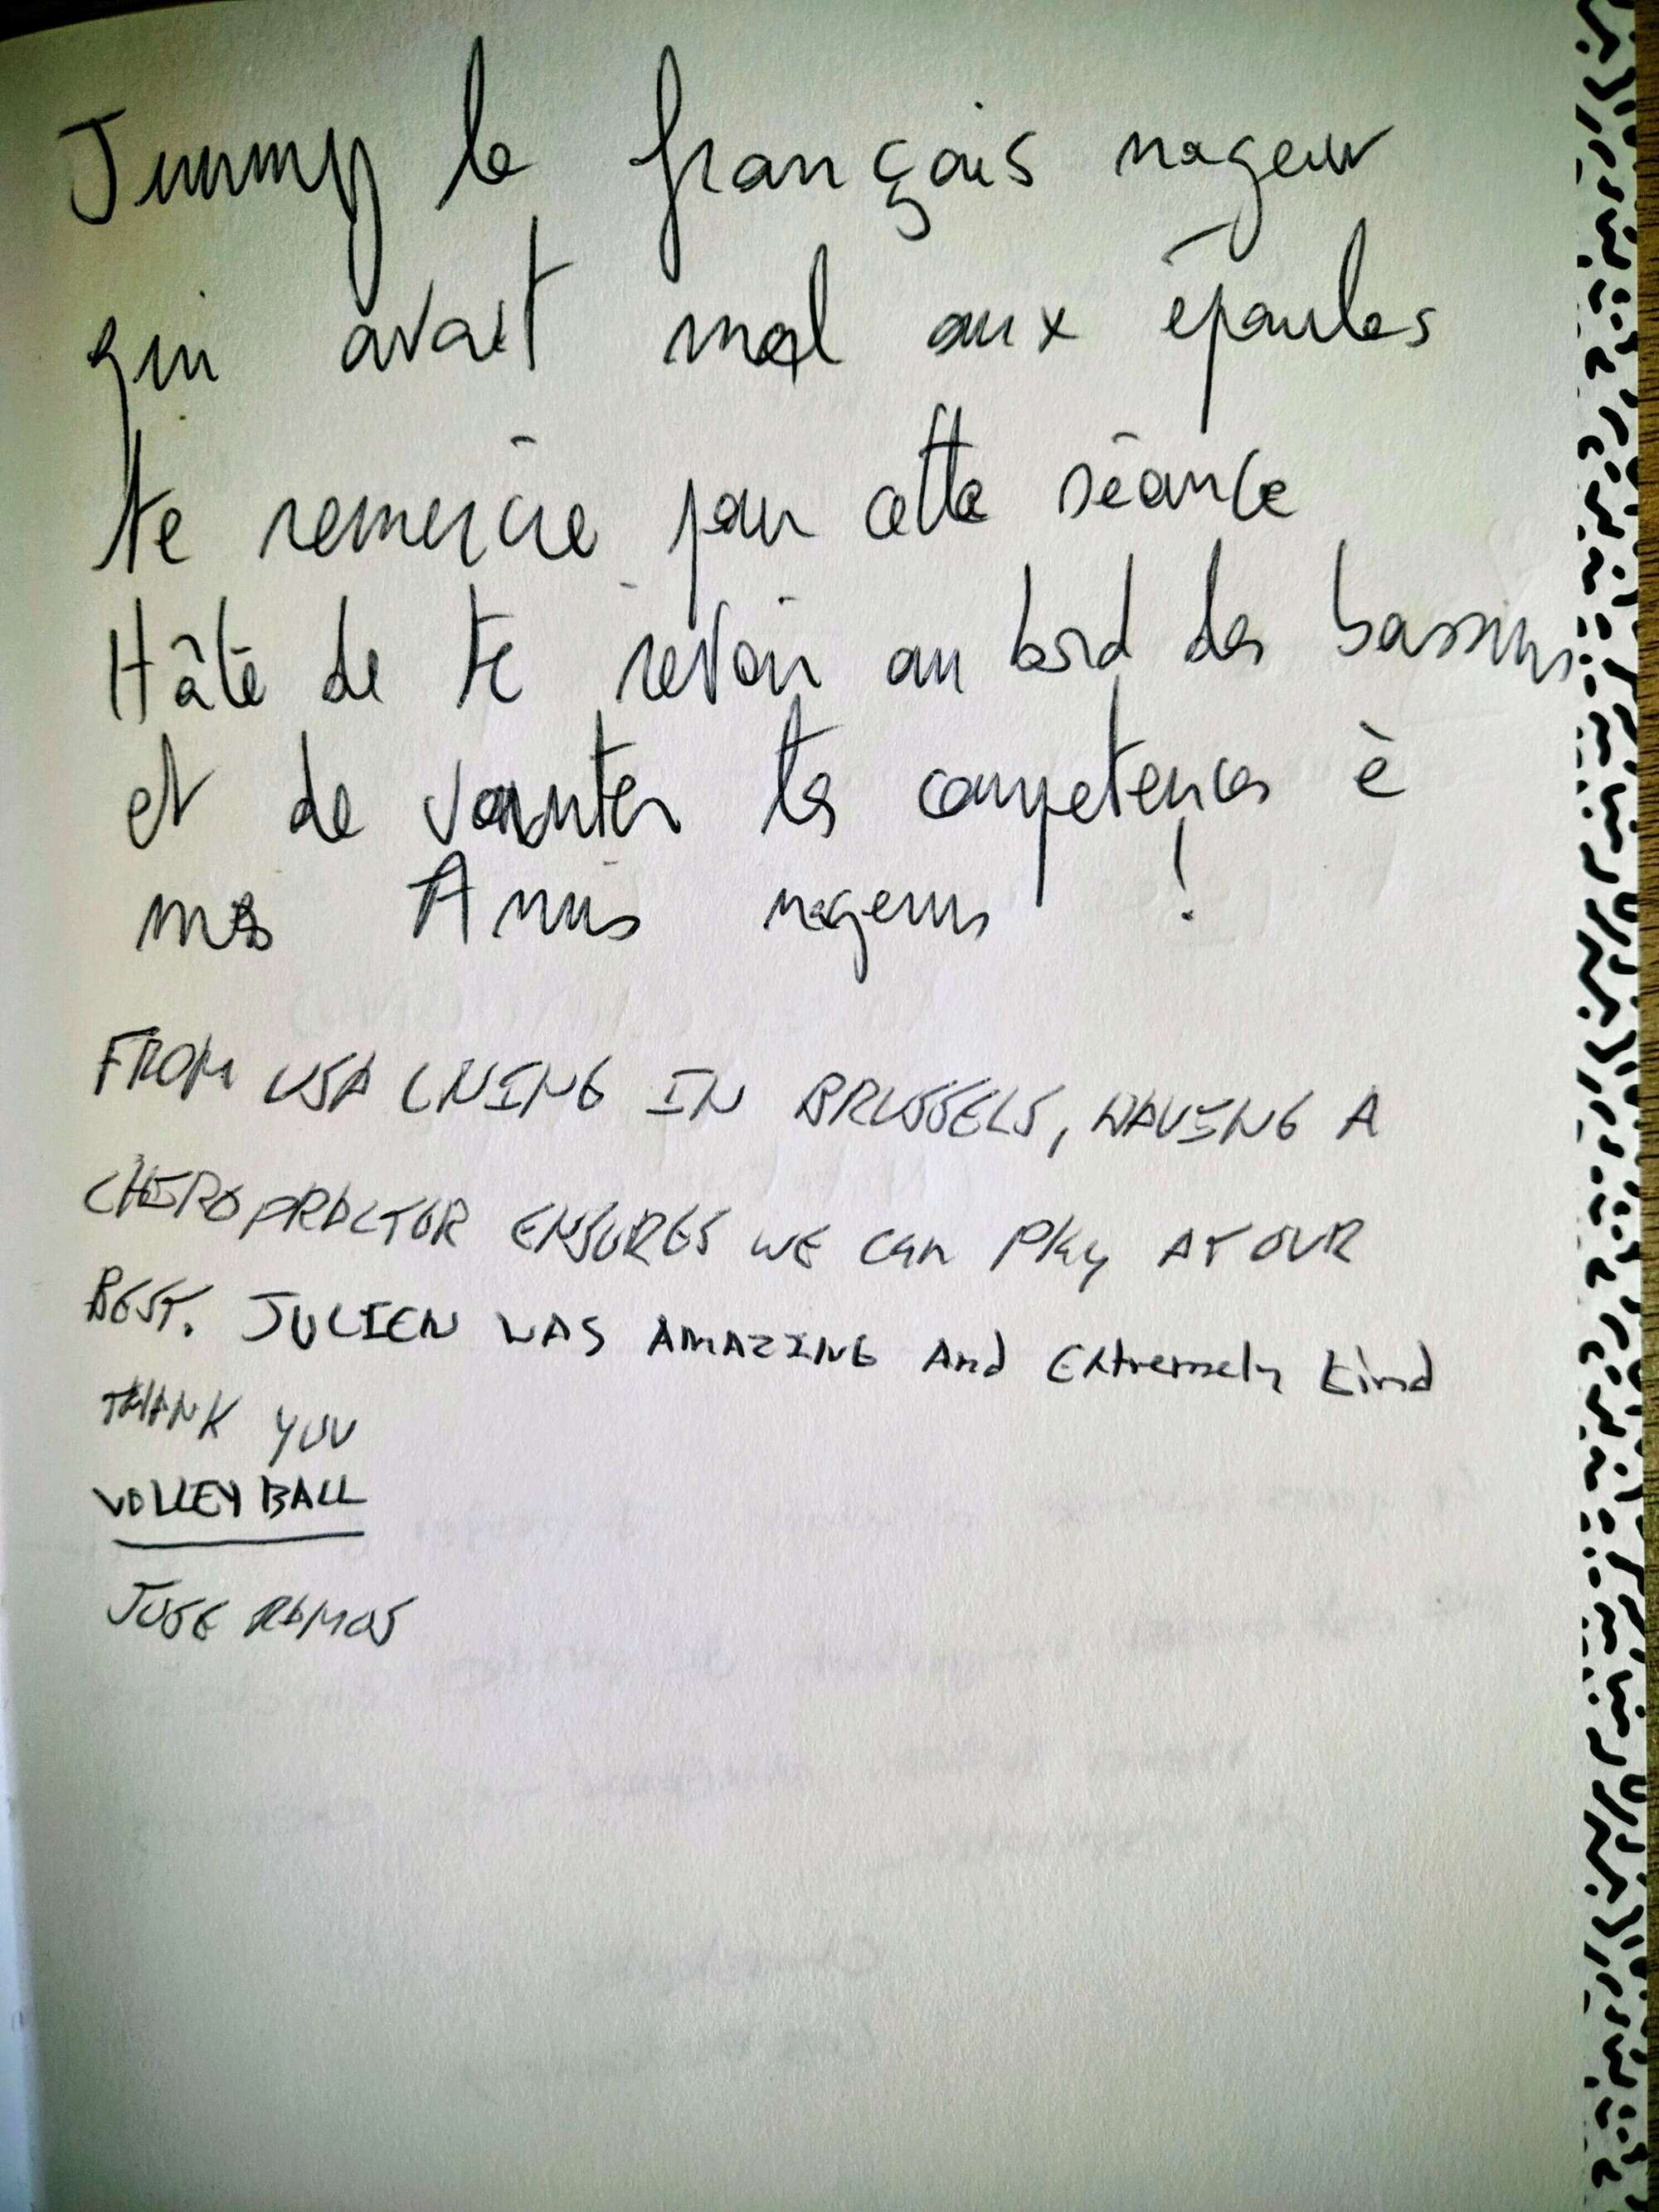 Jimmy le français nageur
qui avait mal aux épaules
te remercie pour cette séance
Hâte de te revoir au bord des bassins
et de vanter tes competences à
mes Amis nageurs !
FROM USA LIVING IN BRUSSELS, HAVING A
CHIROPRACTOR ENSURES WE can PlAy AT OUR
BEST. JULIEN WAS AMAZING And Extremely kind
THANK YOU
VOLLEYBALL
JOSE RAMOS